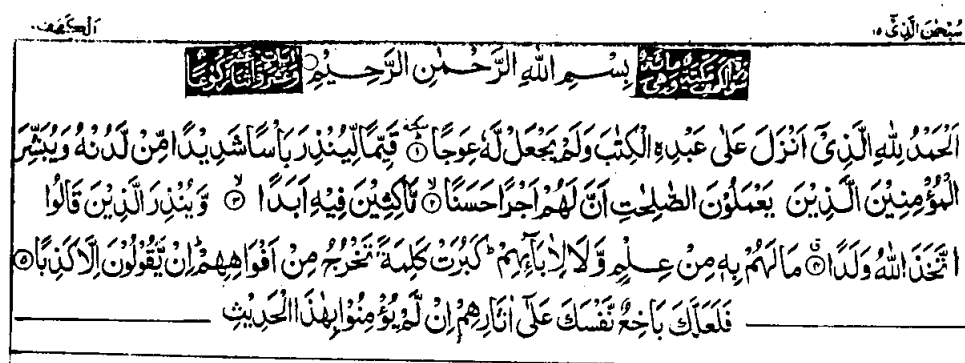 سُبْحٰنَ الَّذِیْٓ ۱۵ اَلْكَهْف
سُوْرَةُ الْكَهْفِ مَكِّیَّةٌ وَّهِیَ مِائَةٌ بِسْمِ اللّٰهِ الرَّحْمٰنِ الرَّحِیْمِ وَّعَشْرُ اٰیَاتٍ رُكُوْعًا
اَلْحَمْدُ لِلّٰهِ الَّذِیْۤ اَنْزَلَ عَلٰی عَبْدِهِ الْكِتٰبَ وَلَمْ یَجْعَلْ لَّهٗ عِوَجًا ﴿۱﴾ قَیِّمًا لِّیُنْذِرَ بَاْسًا شَدِیْدًا مِّنْ لَّدُنْهُ وَیُبَشِّرَ
الْمُؤْمِنِیْنَ الَّذِیْنَ یَعْمَلُوْنَ الصّٰلِحٰتِ اَنَّ لَهُمْ اَجْرًا حَسَنًا ﴿۲﴾ مَّاكِثِیْنَ فِیْهِ اَبَدًا ﴿۳﴾ وَّیُنْذِرَ الَّذِیْنَ قَالُوا
اتَّخَذَ اللّٰهُ وَلَدًا ﴿۴﴾ مَا لَهُمْ بِهٖ مِنْ عِلْمٍ وَّلَا لِاٰبَآئِهِمْ ؕ كَبُرَتْ كَلِمَةً تَخْرُجُ مِنْ اَفْوَاهِهِمْ ؕ اِنْ یَّقُوْلُوْنَ اِلَّا كَذِبًا ﴿۵﴾
فَلَعَلَّكَ بَاخِعٌ نَّفْسَكَ عَلٰۤی اٰثَارِهِمْ اِنْ لَّمْ یُؤْمِنُوْا بِهٰذَا الْحَدِیْثِ